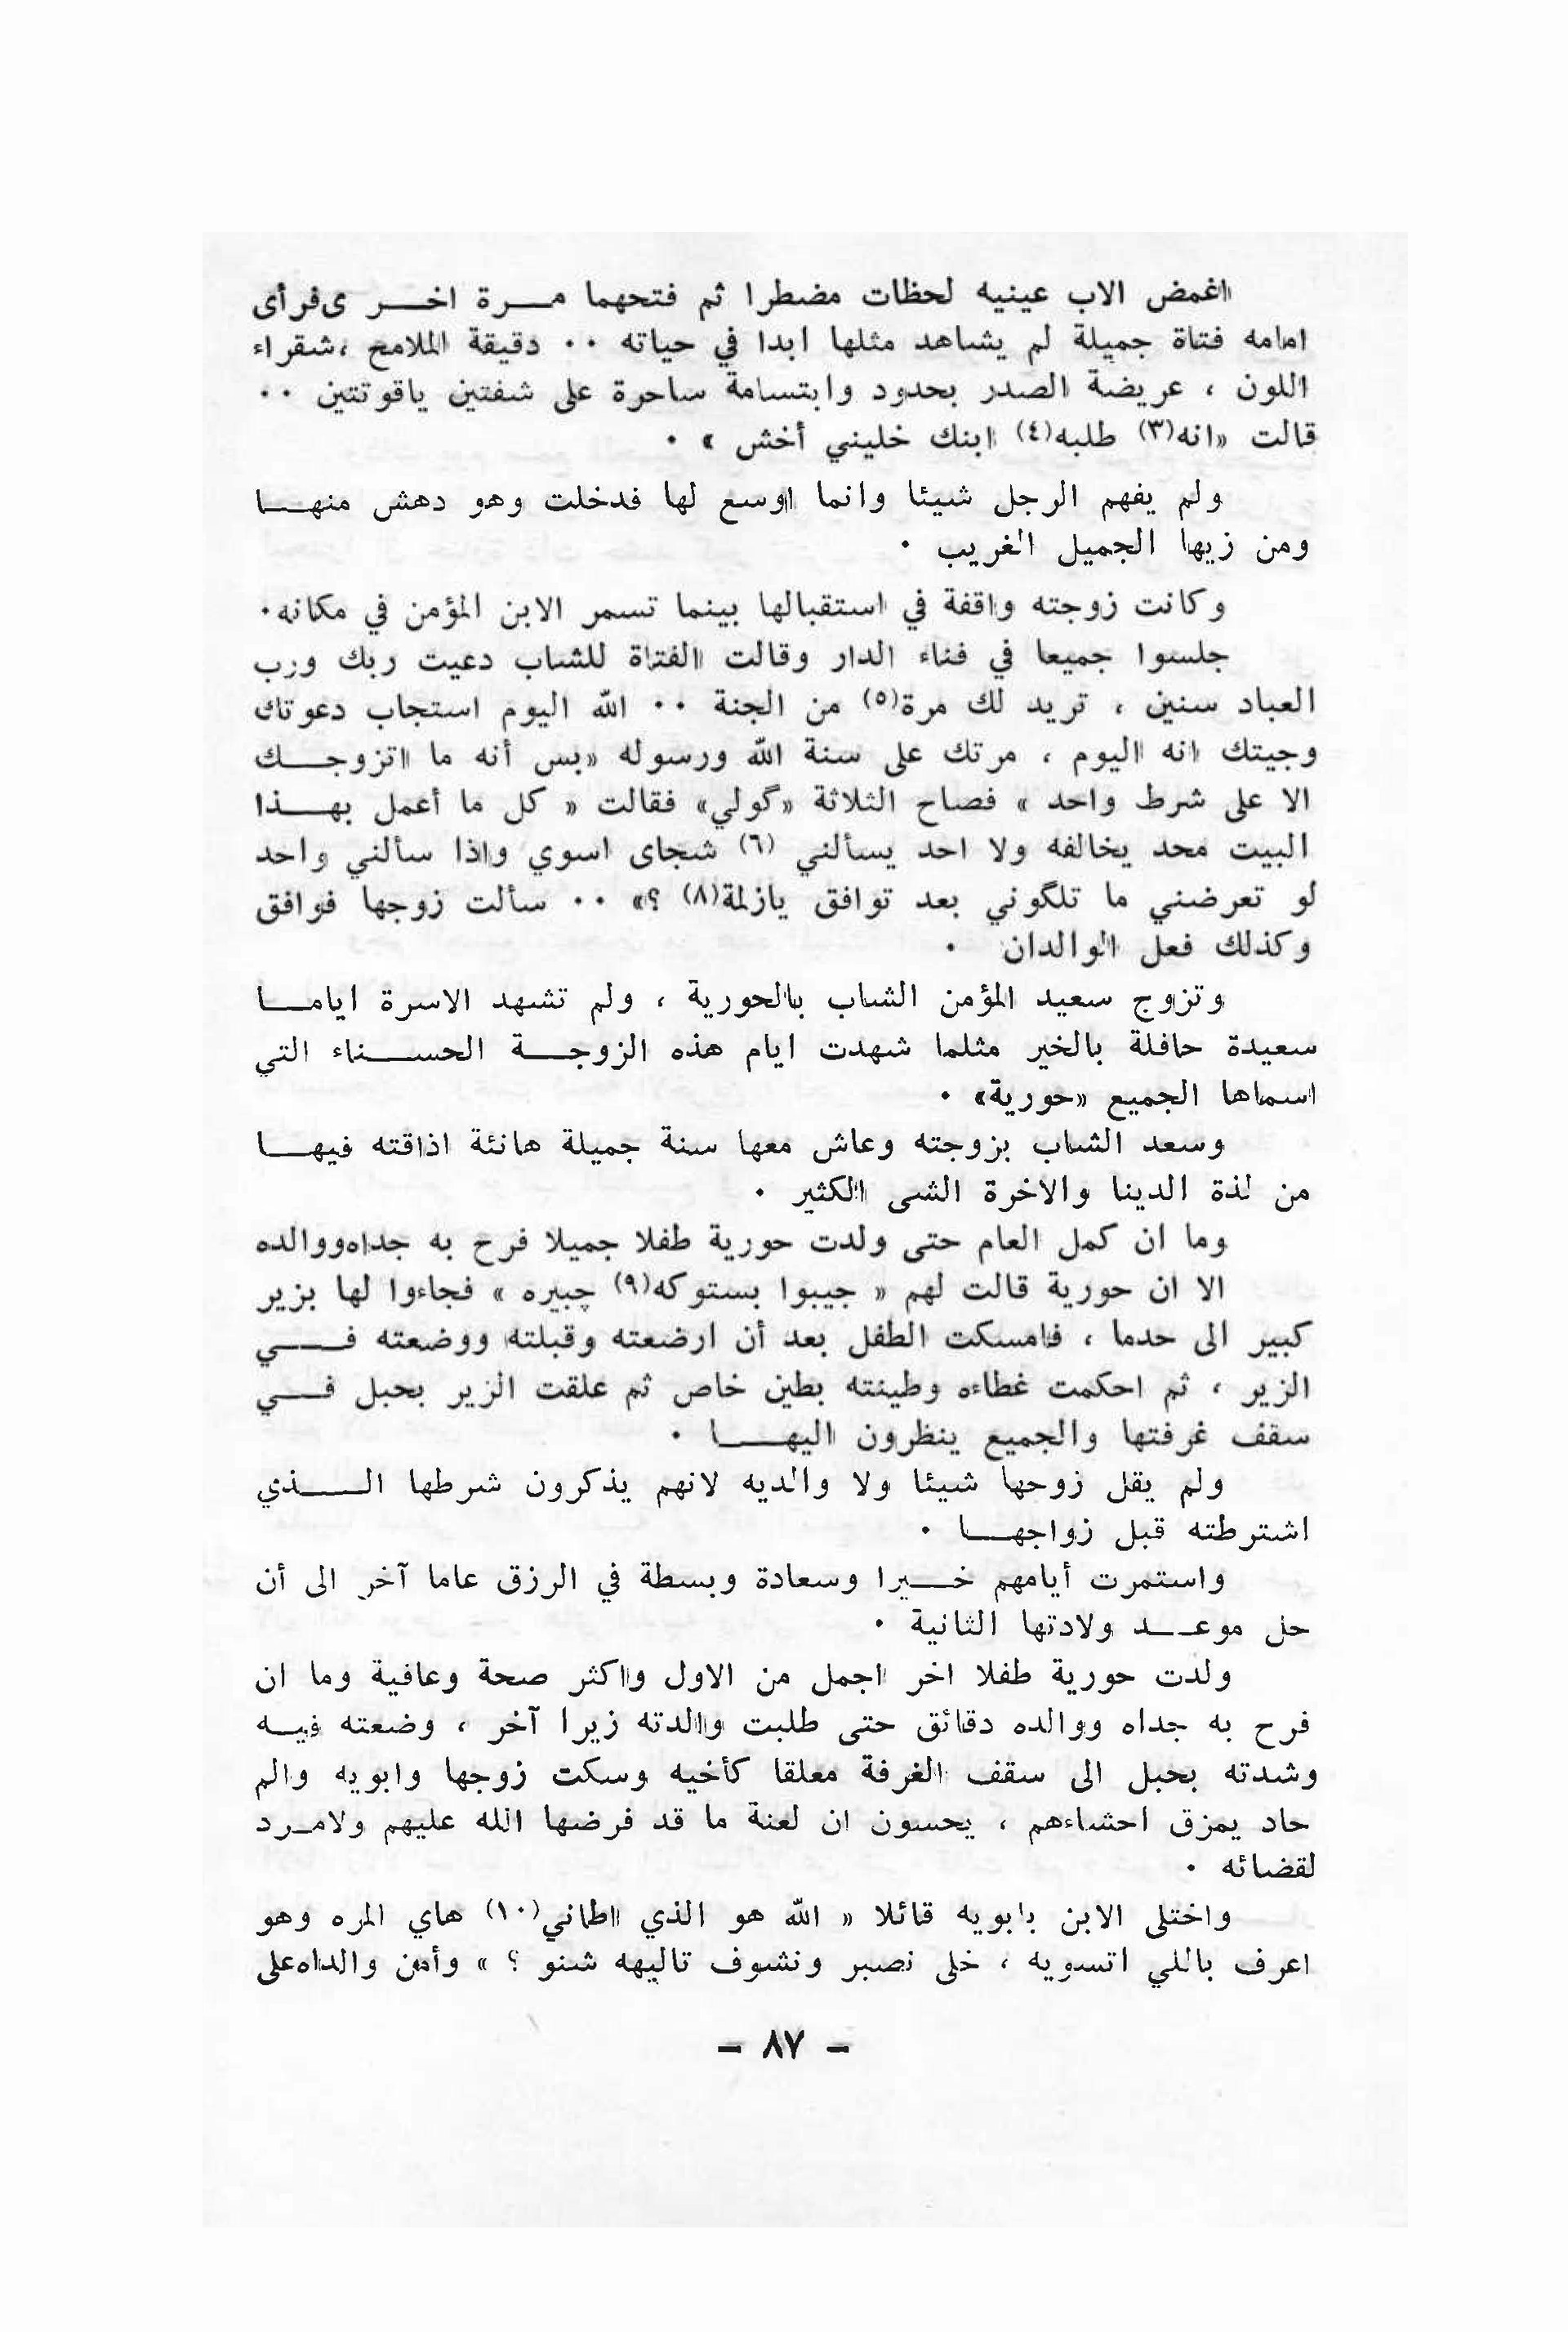 اغمض الاب عينيه لحظات مضطرا ثم فتحهما مـــرة اخـــر ىفرأى
امامه فتاة جميلة لم يشاهد مثلها ابدا في حياته ٠٠ دقيقة الملامح ،شقراء
اللون ، عريضة الصدر بحدود وابتسامة ساحرة على شفتين ياقوتتين ٠٠
قالت «انه(٣) طلبه(٤) ابنك خليني أخش » ٠
ولم يفهم الرجل شيئا وانما اوسع لها فدخلت وهو دهش منهـــا
ومن زيها الجميل الغريب ٠
وكانت زوجته واقفة في استقبالها بينما تسمر الابن المؤمن في مكانه٠
جلسوا جميعا في فناء الدار وقالت الفتاة للشاب دعيت ربك ورب
العباد سنين ، تريد لك مرة(٥) من الجنة ٠٠ الله اليوم استجاب دعوتك
وجيتك انه اليوم ، مرتك على سنة الله ورسوله «بس أنه ما اتزوجـــك
الا على شرط واحد » فصاح الثلاثة «گولي» فقالت « كل ما أعمل بهـــذا
البيت محد يخالفه ولا احد يسألني (٦) شجاى اسوي واذا سألني واحد
لو تعرضني ما تلگوني بعد توافق يازلمة(٨) ؟» ٠٠ سألت زوجها فوافق
وكذلك فعل الوالدان ٠
وتزوج سعيد المؤمن الشاب بالحورية ، ولم تشهد الاسرة ايامـــا
سعيدة حافلة بالخير مثلما شهدت ايام هذه الزوجـــة الحســـناء التي
اسماها الجميع «حورية» ٠
وسعد الشاب بزوجته وعاش معها سنة جميلة هانئة اذاقته فيهـــا
من لذة الدينا والاخرة الشى الكثير ٠
وما ان كمل العام حتى ولدت حورية طفلا جميلا فرح به جداهووالده
الا ان حورية قالت لهم « جيبوا بستوكه(٩) چبيره » فجاءوا لها بزير
كبير الى حدما ، فامسكت الطفل بعد أن ارضعته وقبلته ووضعته فـــي
الزير ، ثم احكمت غطاءه وطينته بطين خاص ثم علقت الزير بحبل فـــي
سقف غرفتها والجميع ينظرون اليهـــا ٠
ولم يقل زوجها شيئا ولا والديه لانهم يذكرون شرطها الـــذي
اشترطته قبل زواجهـــا ٠
واستمرت أيامهم خـــيرا وسعادة وبسطة في الرزق عاما آخر الى أن
حل موعـــد ولادتها الثانية ٠
ولدت حورية طفلا اخر اجمل من الاول واكثر صحة وعافية وما ان
فرح به جداه ووالده دقائق حتى طلبت والدته زيرا آخر ، وضعته فيـــه
وشدته بحبل الى سقف الغرفة معلقا كأخيه وسكت زوجها وابويه والم
حاد يمزق احشاءهم ، يحسون ان لعنة ما قد فرضها الله عليهم ولامـرد
لقضائه ٠
واختلى الابن بابويه قائلا « الله هو الذي اطاني(١٠) هاي المره وهو
اعرف باللي اتسويه ، خلى نصبر ونشوف تاليهه شنو ؟ » وأمن والداهعلى
— ٨٧ —